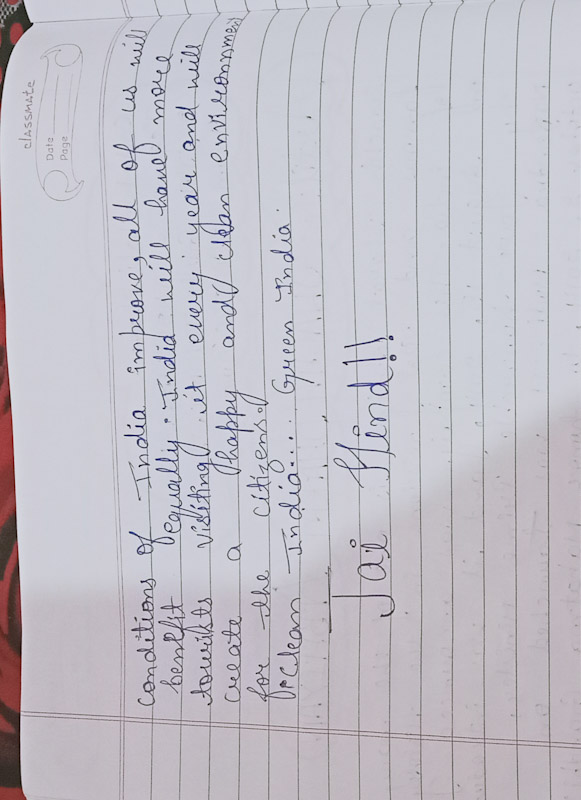 classmate
Date
Page
conditions of India improve, all of us will
benefit equally. India will have more
tourists visiting it every year and will
create a happy and clean environment
for the citizens.
Clean India.... Green India.
Jai Hind!!